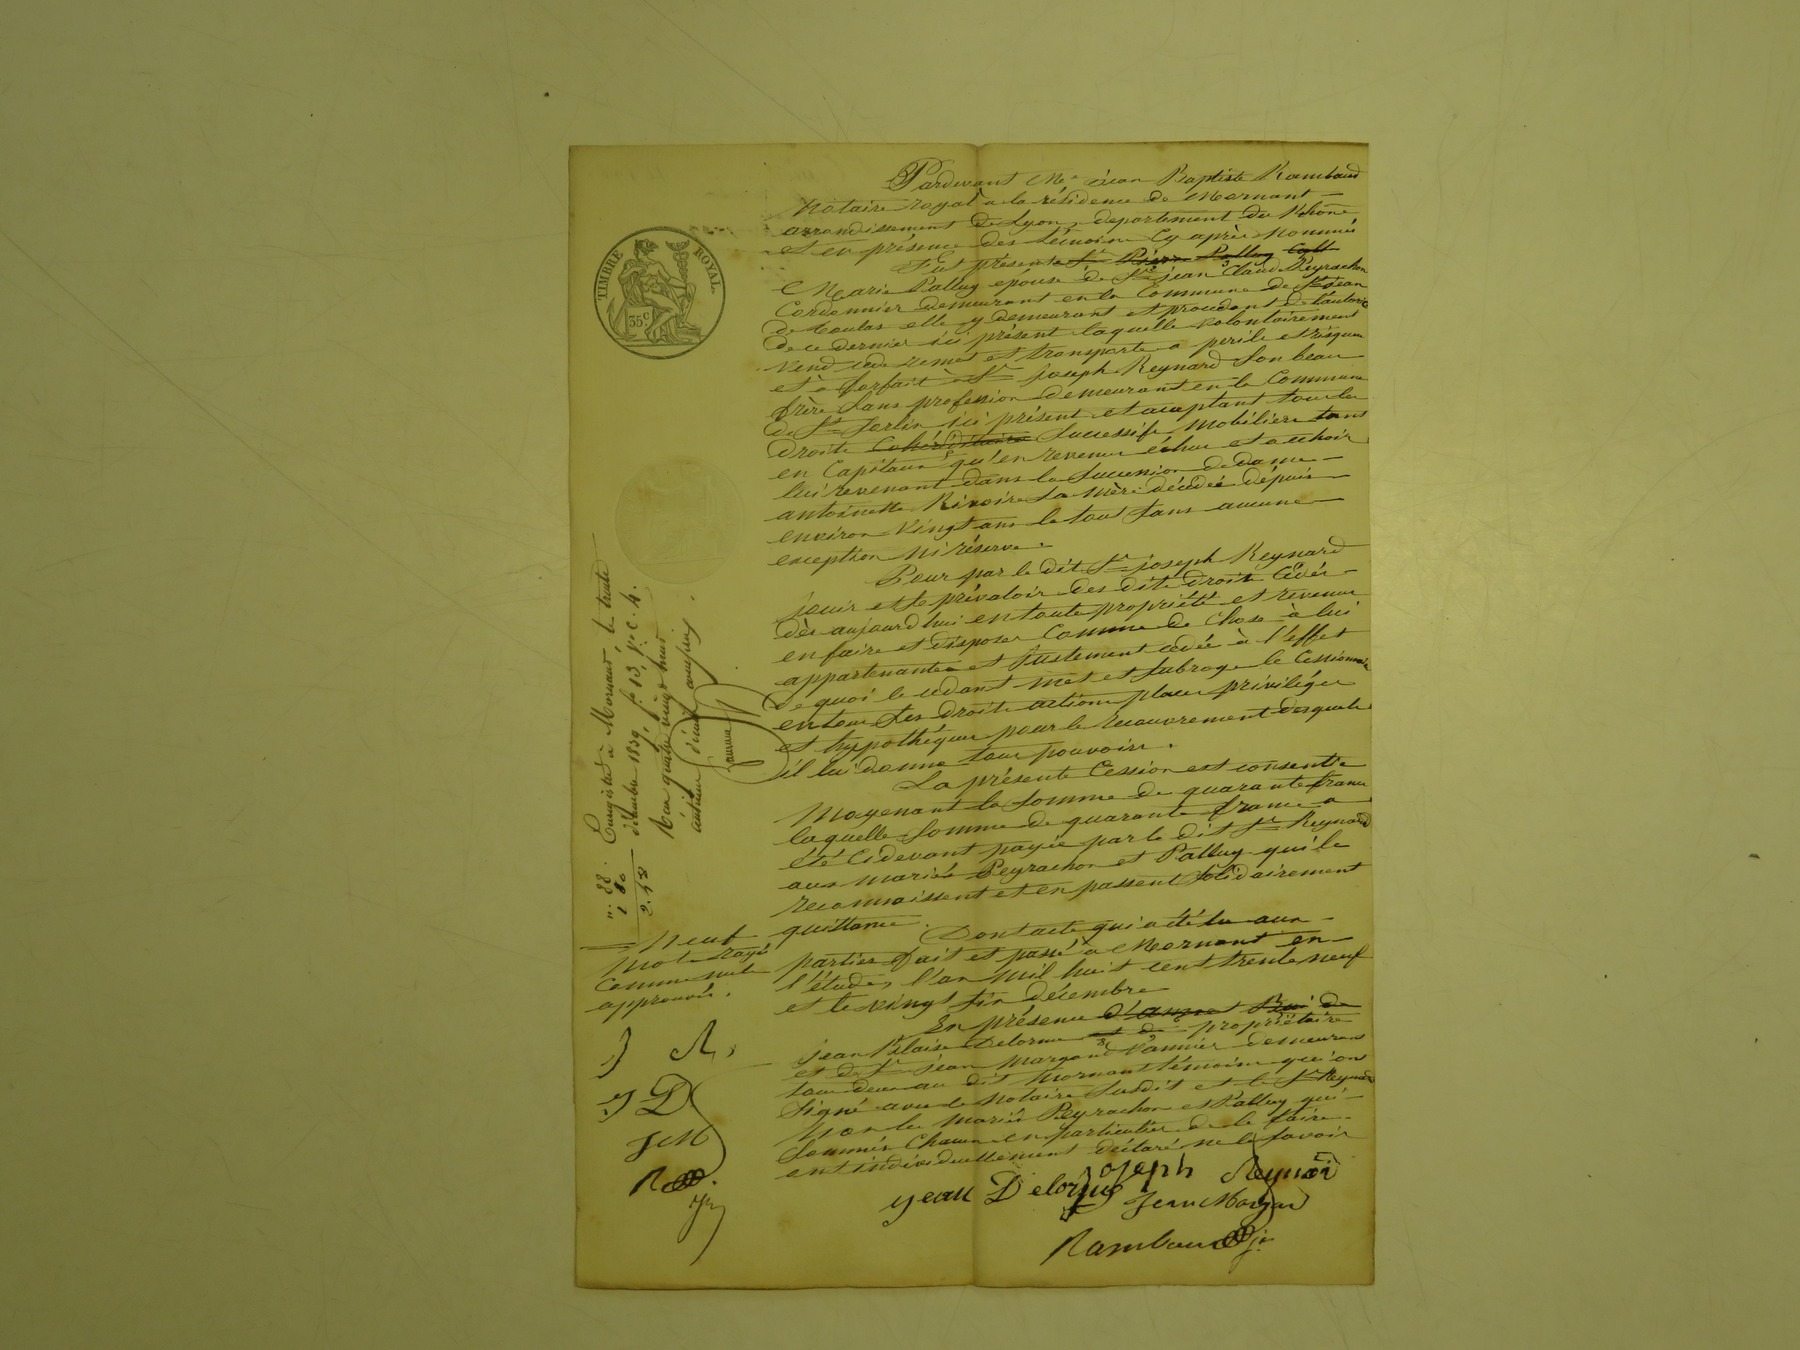 TIMBRE ROYAL
35 c
Pardevant Me jean Baptiste Rambaud
Notaire royal a la résidence de Mornant
arrondissement de Lyon, departement du Rhône
et en présence des témoins cy après nommés
Fut présente Sr Pierre Palluy
Marie Palluy épouse de Sr jean Claud Peyrachon
Cordonnier demeurant en la Commune de St jean
de toulas elle y demeurant et procedant de l'autorité
de ce dernier ici présent laquelle volontairement
vend cede remet et transporte a perils et risques
et à forfait à Sr joseph Reynard son beau
frère sans profession demeurant en la Commune
de St Sorlin ici présent et aceptant tous les
droits Cohéréditaires successifs mobiliers tans
en Capitaux qu'en revenus échus et a echoir
lui revenant dans la succession de dame
antoinette Rivoire sa mère décédée dépuis
environ vingt ans le tout sans aucune
exception ni réserve.
Pour par le dit Sr joseph Reynard
jouir et se prévaloir des dits droits cédés
dès aujourd'hui en toute propriété et revenus
en faire et disposer Comme de Chose à lui
appartenante et justement cedée à l'effet
de quoi le cedant met et subroge le Cessionnaire
en tous ses droits actions places privilèges
et hypothéques pour le recouvrement desquels
il lui donne tous pouvoirs.
La présente Cession est consentie
Moyenant la somme de quarante francs
laquelle somme de quarante francs a
été Cidevant payée par le dit Sr Reynard
aux mariés Peyrachon et Palluy qui le
reconnaissent et en passent solidairement
quittance.
Dont acte qui a été lu aux
parties fait et passé à Mornant en
l'étude, l'an mil huit cent trente neuf
et le vingt six décembre
En présence
jean Blaise Delorme propriétaire
et de Sr jean Margand Vannier demeurans
tous deux au dit Mornant témoins qui ont
signé avec le Notaire susdit et le Sr Reynard
Non les mariés Peyrachon et Palluy qui
sommés Chacun en particulier de le faire
ont individuellement déclaré ne le savoir
joseph Reynard
jean Delorme
Jean Margand
Rambaud
Enregistré à Mornant le trente
décembre 1839, fo 13 Vo c. 4.
Reçu quatre vingt huit
centimes dixième compris.
n. 88.
1 80
2. 68
Neuf
mots rayés
Comme nuls
approuvés.
j R
j D
J M
R